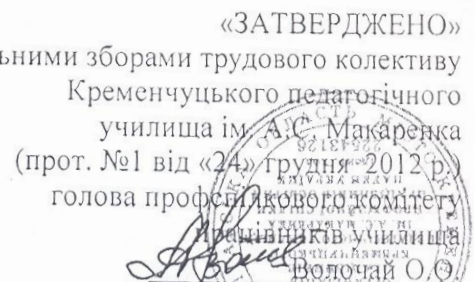 «ЗАТВЕРДЖЕНО»
ьними зборами трудового колективу
Кременчуцького педагогічного
училища ім. А.С. Макаренка
(прот. №1 від «24» грудня 2012 р.)
голова профспілкового комітету
працівників училища
Волочай О.О.
22543126